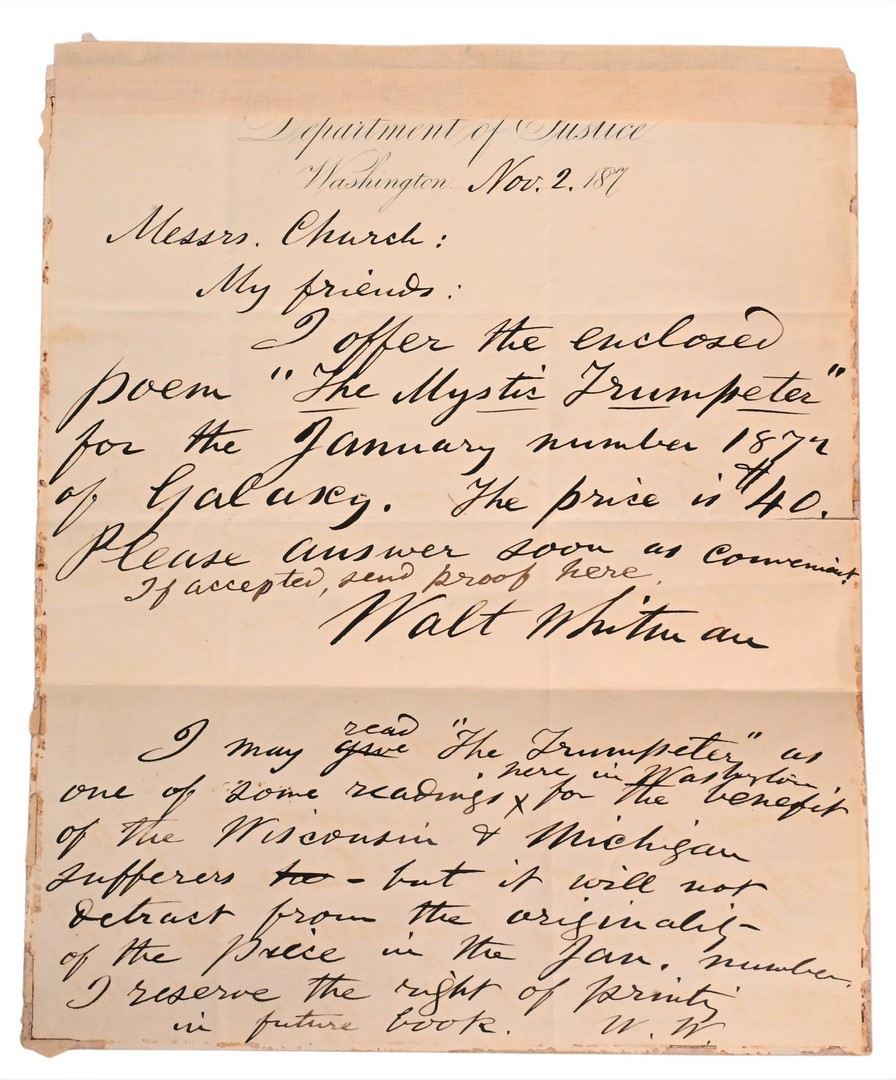 Department of Justice
Washington Nov. 2. 187
Messrs. Church:
My friends:
I offer the enclosed
poem "The Mystic Trumpeter"
for the January number 1872
of Galaxy. The price is $40.
Please answer soon as convenient
If accepted, send proof here.
Walt Whitman
read
I may give "The Trumpeter" as
here in Washington
one of some readings x for the benefit
of the Wisconsin & Michigan
sufferers to - but it will not
detract from the originality
of the piece in the Jan. number.
I reserve the right of printing
in future book. W. W.